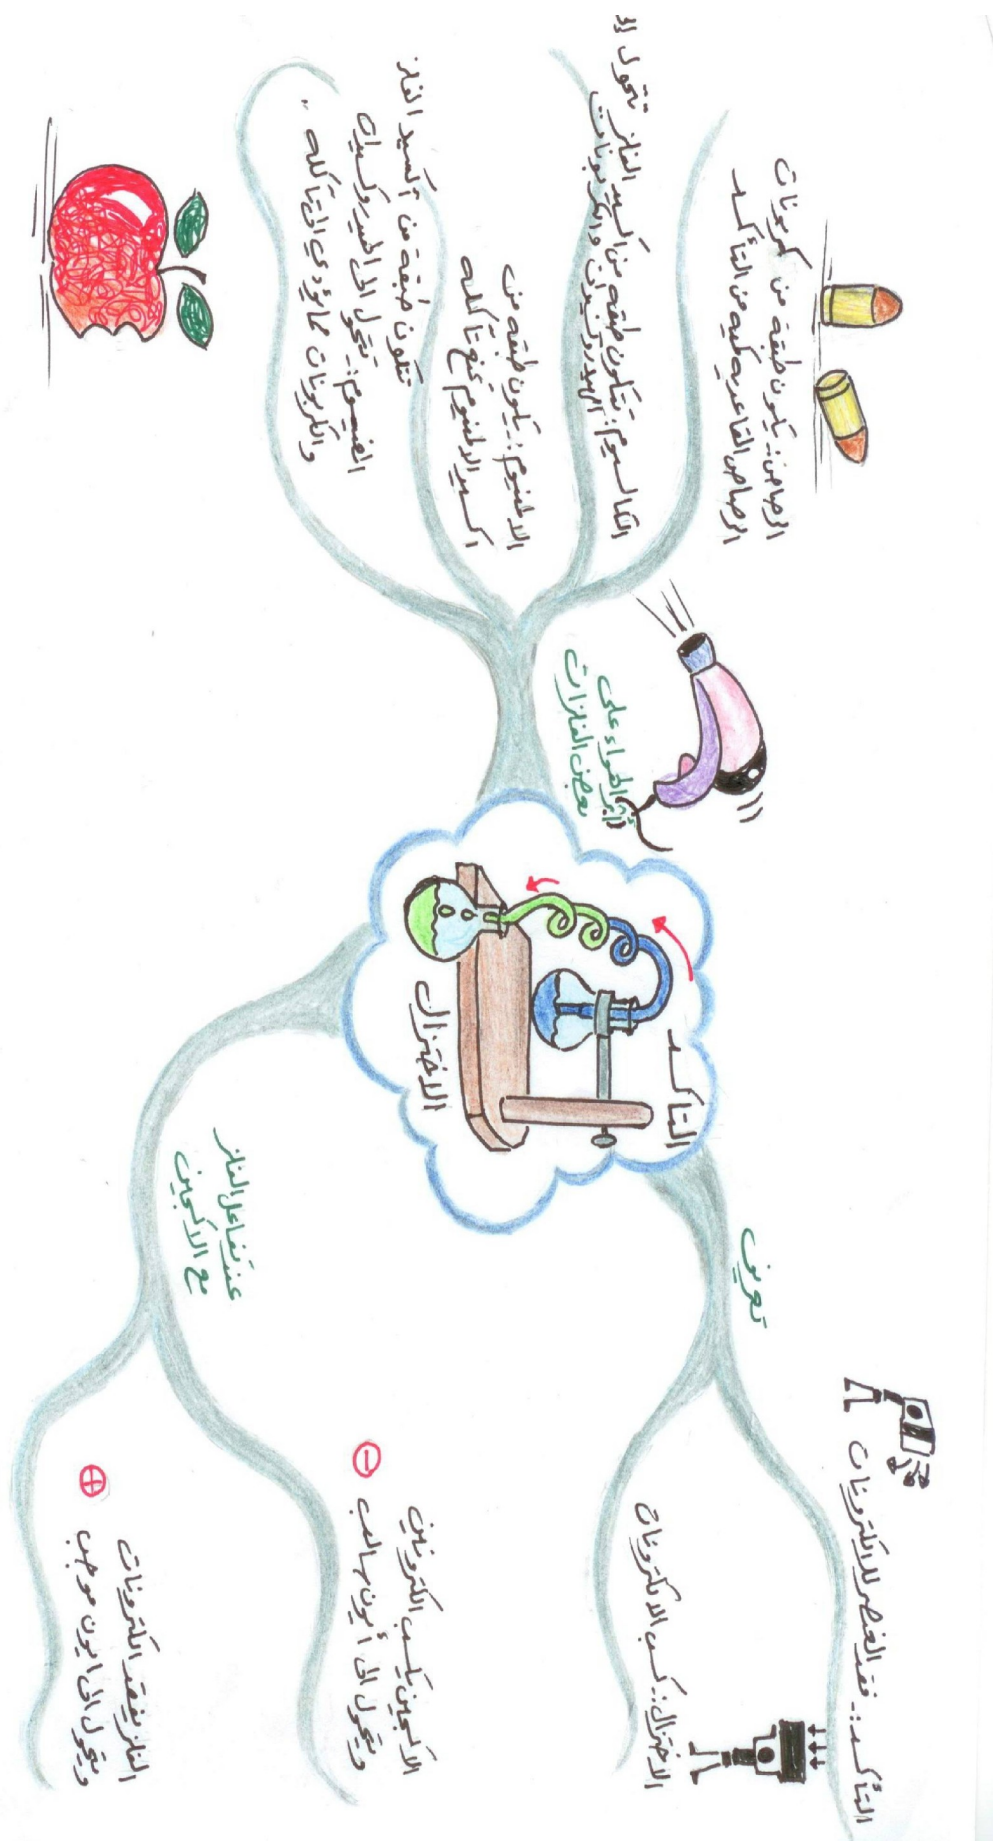 التأكسد
الاختزال
تعريف
التأكسد :- فقد العنصر للالكترونات
الاختزال :- كسب الالكترونات
عند تفاعل الفلز
مع الاكسجين
الاكسجين يكسب الكترونين
ويتحول الى أيون سالب
الفلز يفقد الكترونات
ويتحول الى ايون موجب
تأثير الهواء على
بعض الفلزات
الرصاص :- يكون طبقة من كربونات
الرصاص القاعدية تحميه من التأكسد
الكالسيوم :- تتكون طبقة من اكسيد الفلز تتحول إلى
الهيدروكسيدات والكربونات
الالمنيوم :- يكون طبقة من
اكسيد الالمنيوم تمنع تآكله
تتكون طبقة من أكسيد الفلز
تتحول الى الهيدروكسيدات
والكربونات مما يؤدي الى تآكله